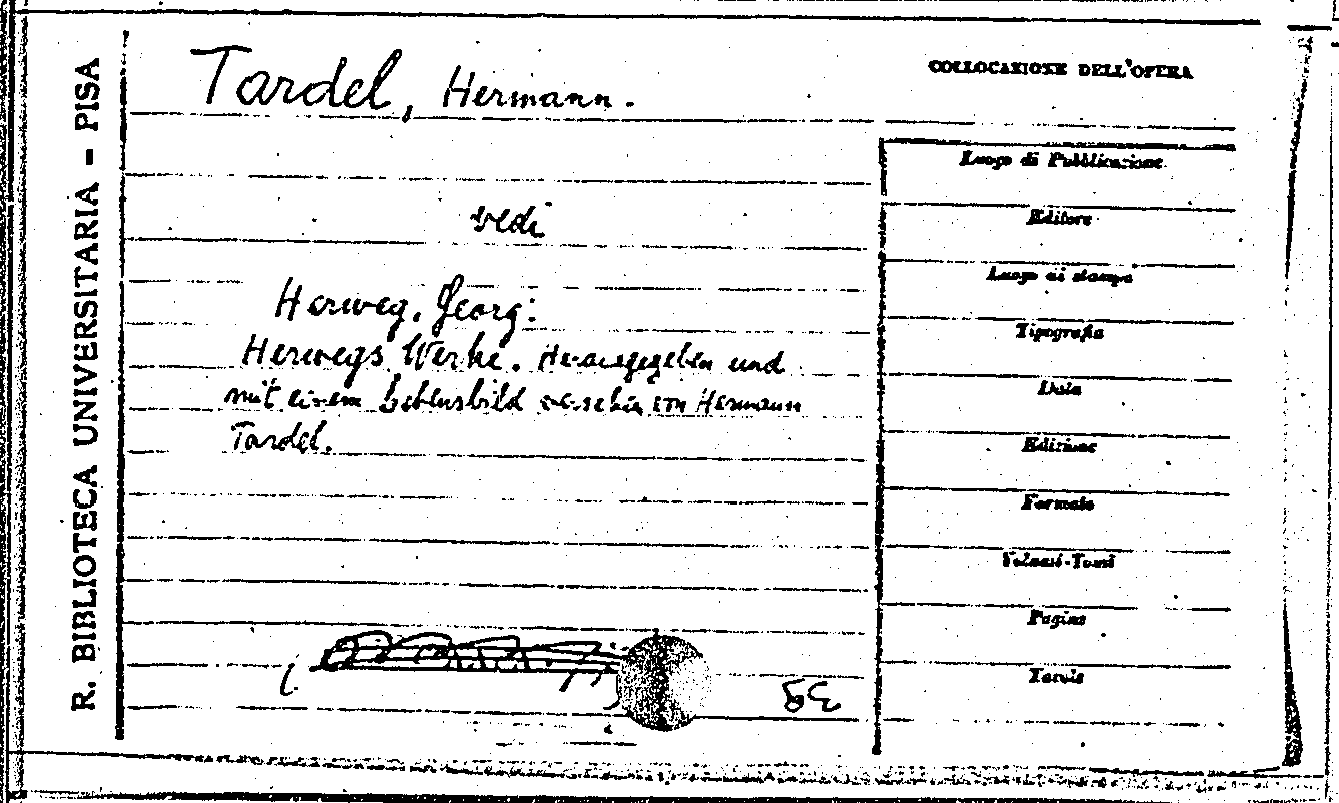 R. BIBLIOTECA UNIVERSITARIA - PISA
Tardel, Hermann.
vedi
Herweg, Georg:
Herwegs Werke. Herausgegeben und
mit einem Lebensbild versehen von Hermann
Tardel.
COLLOCAZIONE DELL'OPERA
Luogo di Pubblicazione
Editore
Luogo di stampa
Tipografia
Data
Edizione
Formato
Volumi-Tomi
Pagine
Tavole